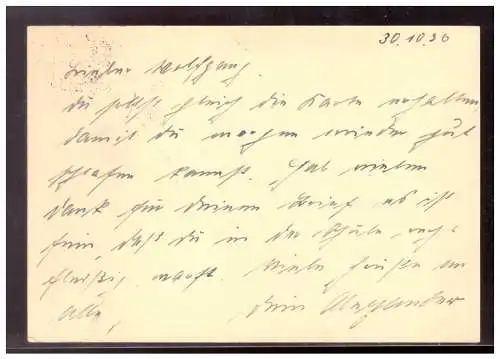 30.10.36
Lieber Wolfgang.
Du sollst gleich die Karte erhalten,
damit du morgen wieder gut
schlafen kannst. Hab vielen
Dank für deinen Brief es ist
fein, daß du in der Schule recht
fleißig warst. Viele Grüße an
alle, dein